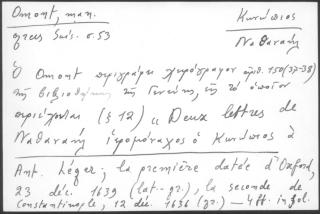 Omont, man.
grecs Suis. σ. 53
Κωνώπιος
Ναθαναήλ
Ὁ Omont περιγράφει χειρόγραφον ἀριθ. 150 (37-38)
τῆς βιβλιοθήκης τῆς Γενεύης, εἰς τὸ ὁποῖον
περιέχεται (§ 12) « Deux lettres de
Ναθαναὴλ ἱερομόναχος ὁ Κωνώπιος à
Ant. Léger ; la première datée d'Oxford,
23 déc. 1639 (lat.-gr.), la seconde de
Constantinople, 12 déc. 1636 (gr.) — 4 ff. in fol.